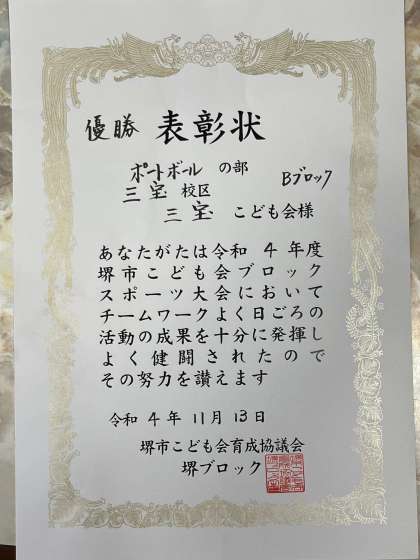 優勝 表彰状
ポートボール の部
Bブロック
三宝 校区
三宝 こども会様
あなたがたは令和4年度
堺市こども会ブロック
スポーツ大会において
チームワークよく日ごろの
活動の成果を十分に発揮し
よく健闘されたので
その努力を讃えます
令和 4 年 11 月 13 日
堺市こども会育成協議会
堺ブロック